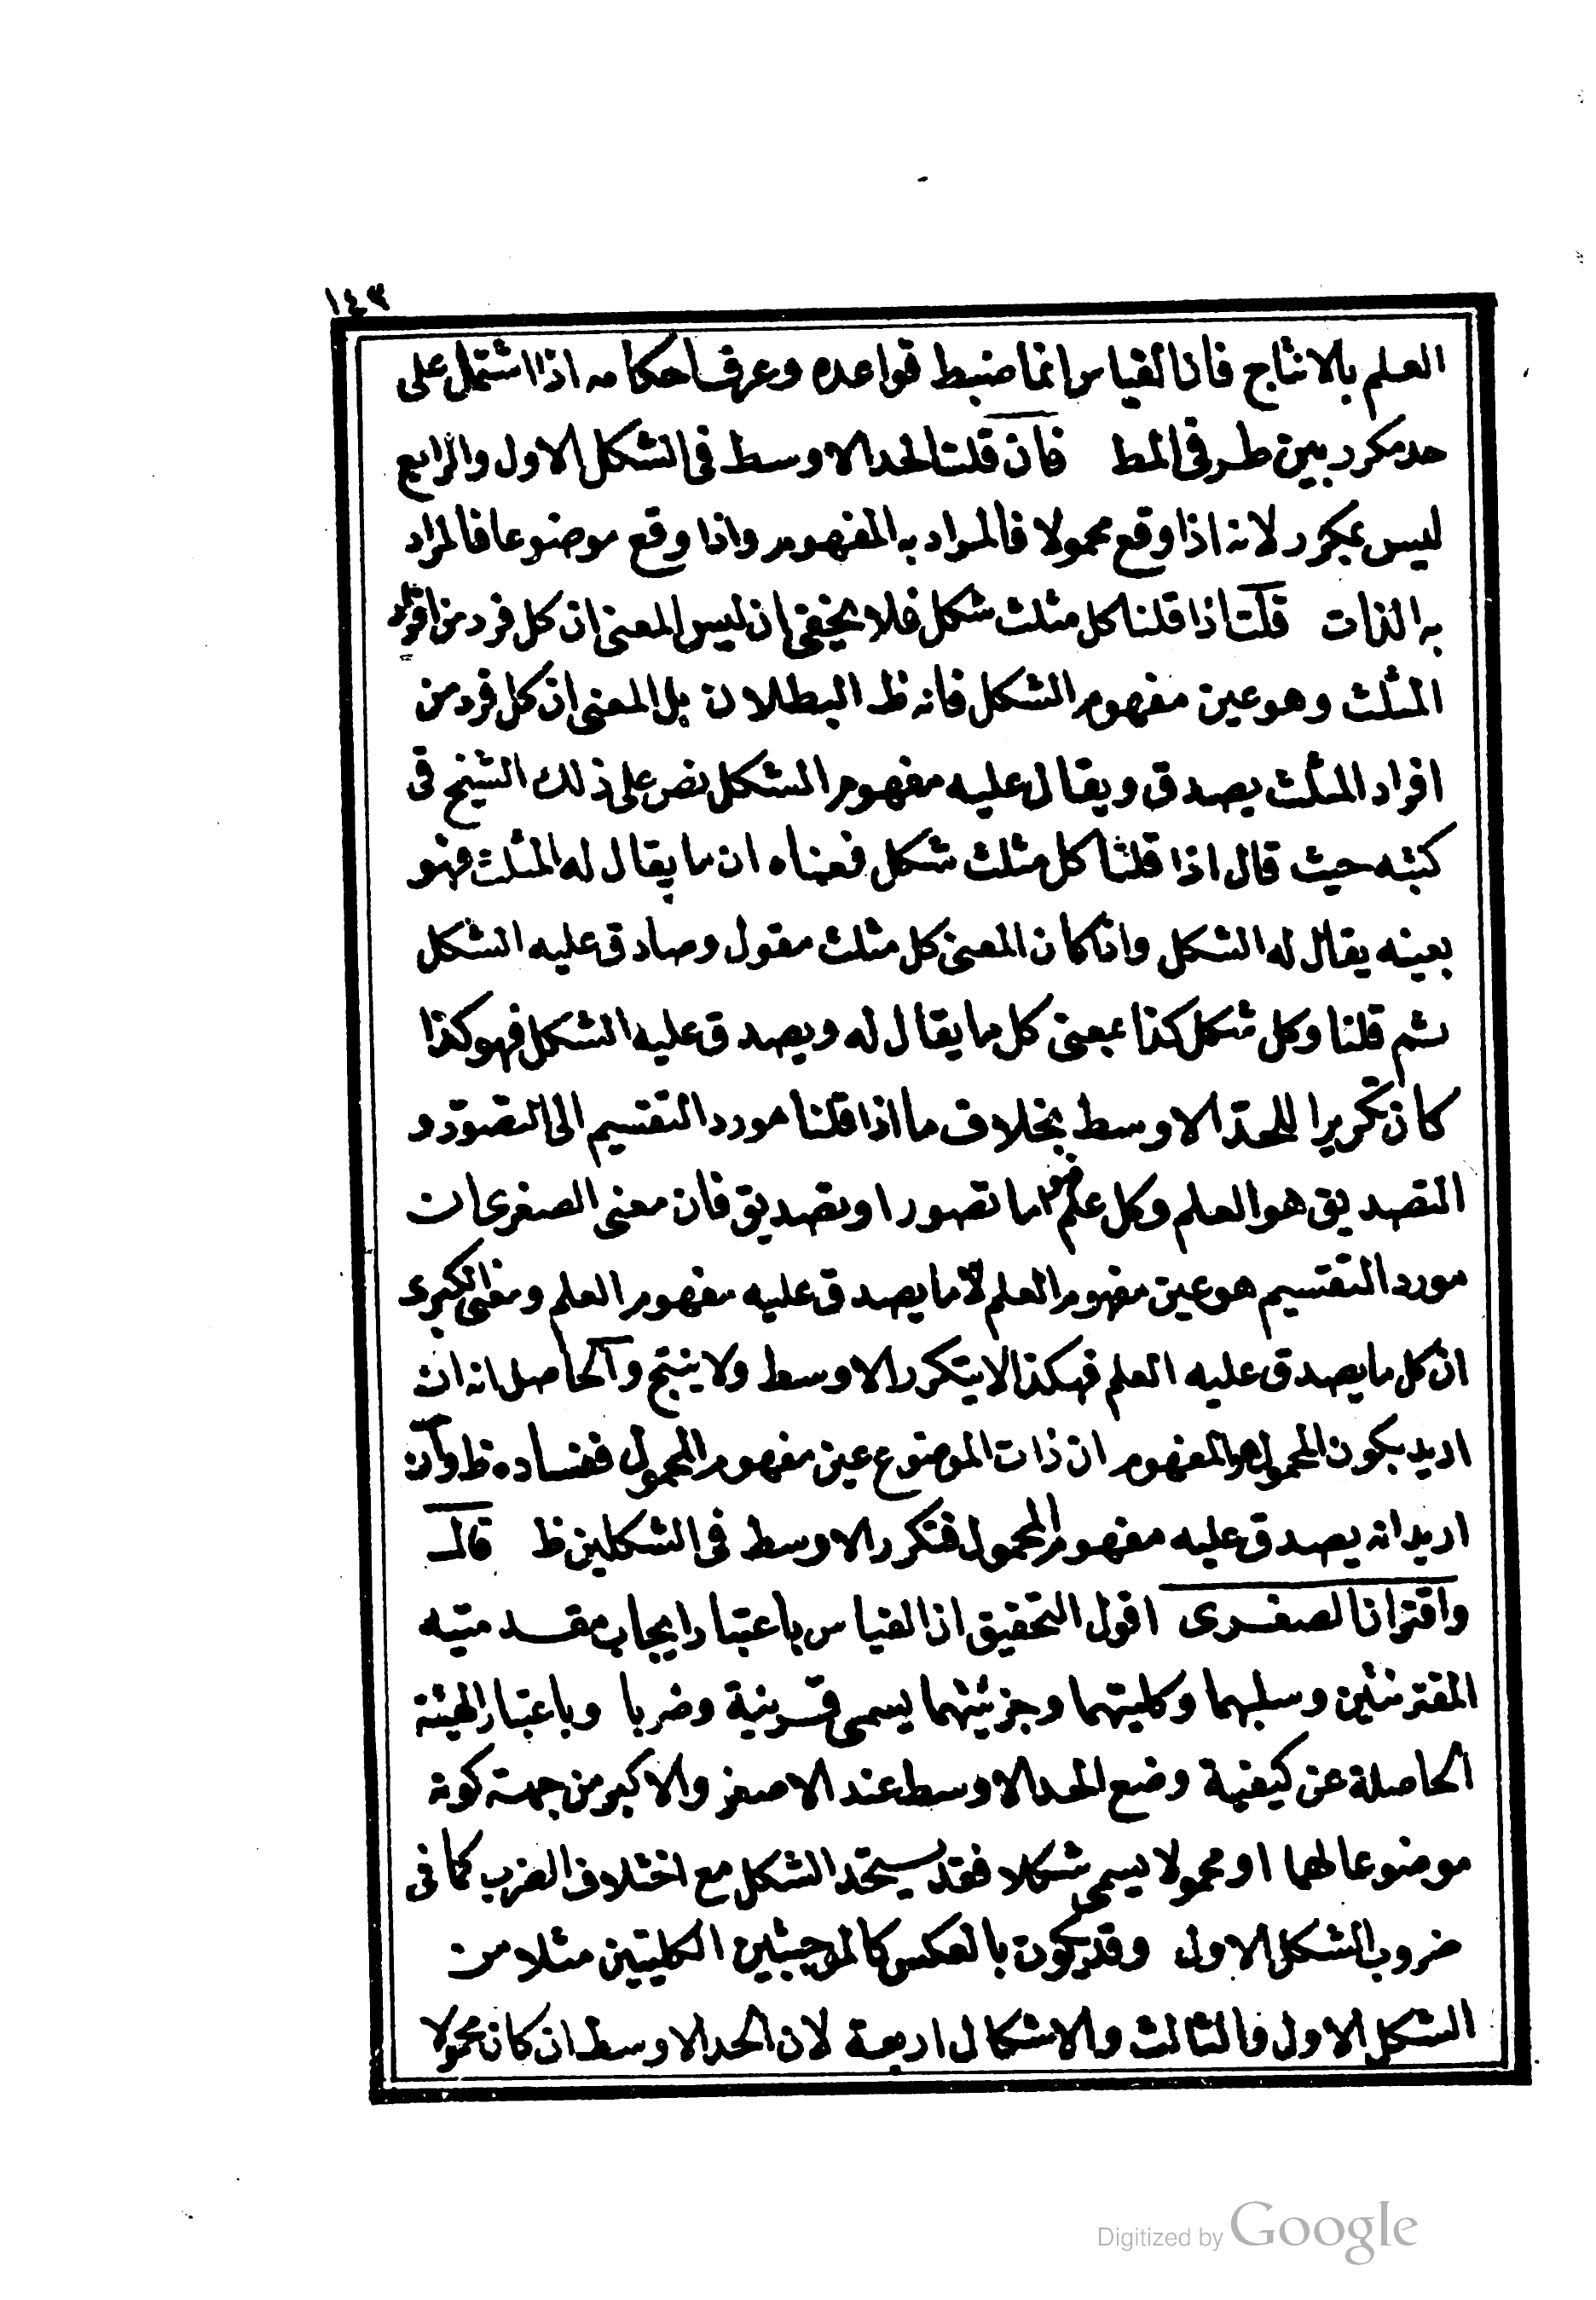 ١٤٣
العلم بالانتاج فان القياس انما ضبط قواعده وعرف احكامه اذا اشتمل على
حد مكرر بين طرفى المط فان قلت الحد الاوسط فى الشكل الاول والرابع
ليس بمكرر لانه اذا وقع محمولا فالمراد به المفهوم واذا وقع موضوعا فالمراد
به الذات قلت اذا قلنا كل مثلث شكل فلا يخفى ان ليس المعنى ان كل فرد من افراد
المثلث وهو عين مفهوم الشكل فانه ظ البطلان بل المعنى ان كل فرد من
افراد المثلث يصدق ويقال عليه مفهوم الشكل نص على ذلك الشيخ فى
كتبه حيث قال اذا قلنا كل مثلث شكل فمعناه ان ما يقال له المثلث فهو
بعينه يقال له الشكل واذا كان المعنى كل مثلث مقول وصادق عليه الشكل
ثم قلنا وكل شكل كذا بمعنى كل ما يقال له ويصدق عليه الشكل فهو كذا
كان تكريرا للحد الاوسط بخلاف ما اذا قلنا مورد التقسيم الى التصور و
التصديق هو العلم وكل علم اما تصور او تصديق فان معنى الصغرى ان
مورد التقسيم هو عين مفهوم العلم لا ما يصدق عليه مفهوم العلم ومعنى الكبرى
ان كل ما يصدق عليه العلم فهو كذا لا يتكرر الاوسط ولا ينتج والحاصل انه ان
اريد بكون المحمول هو المفهوم ان ذات الموضوع عين مفهوم المحمول ففساده ظ وان
اريد انه يصدق عليه مفهوم المحمول فتكرر الاوسط فى الشكلين ظ قال
واقتران الصغرى اقول التحقيق ان القياس باعتبار ايجاب مقدمتيه
المقترنتين وسلبهما وكليتهما وجزئيتهما يسمى قرينة وضربا وباعتبار الهيئة
الحاصلة عن كيفية وضع الحد الاوسط عند الاصغر والاكبر من جهة كونه
موضوعا لهما او محمولا يسمى شكلا فقد يتحد الشكل مع اختلاف الضرب كما فى
ضروب الشكل الاول وقد يكون بالعكس كالموجبتين الكليتين مثلا من
الشكل الاول والثالث والاشكال اربعة لان الحد الاوسط ان كان محمولا
Digitized by Google